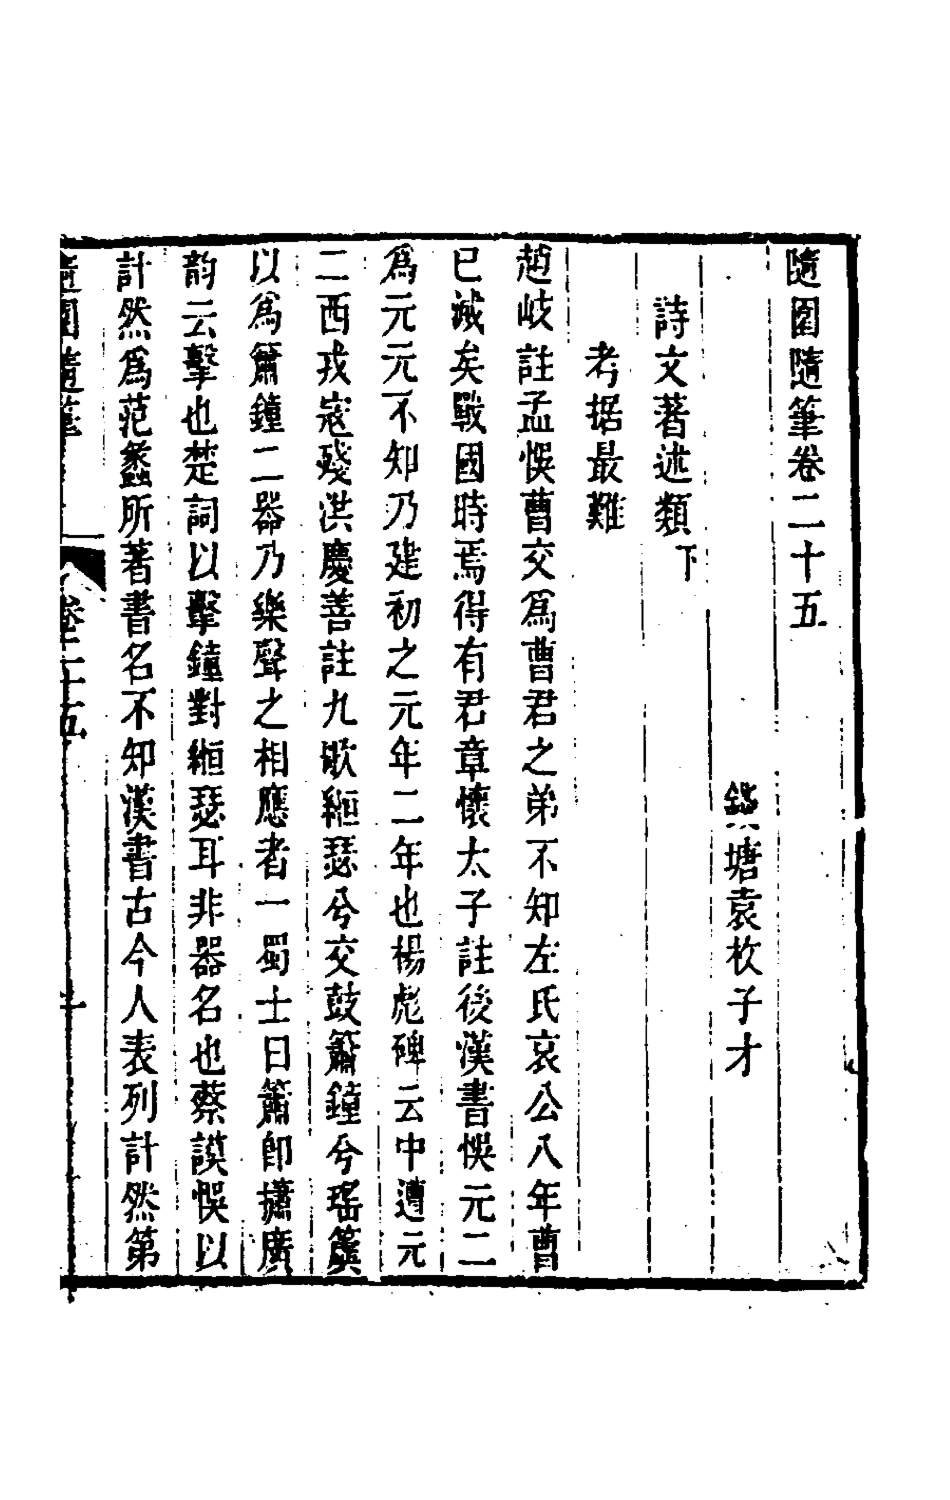 隨園隨筆卷二十五
錢塘袁枚子才
詩文著述類下
考据最難
趙岐註孟悞曹交爲曹君之弟不知左氏哀公八年曹
已滅矣戰國時焉得有君章懷太子註後漢書悞元二
爲元元不知乃建初之元年二年也楊彪碑云中遭元
二西戎寇殘洪慶善註九歌緪瑟兮交鼓簫鐘兮瑤簴
以爲簫鐘二器乃樂聲之相應者一蜀士曰簫卽𢷤廣
韵云擊也楚詞以擊鐘對緪瑟耳非器名也蔡謨悞以
計然爲范蠡所著書名不知漢書古今人表列計然第
隨園隨筆
卷二十五
一